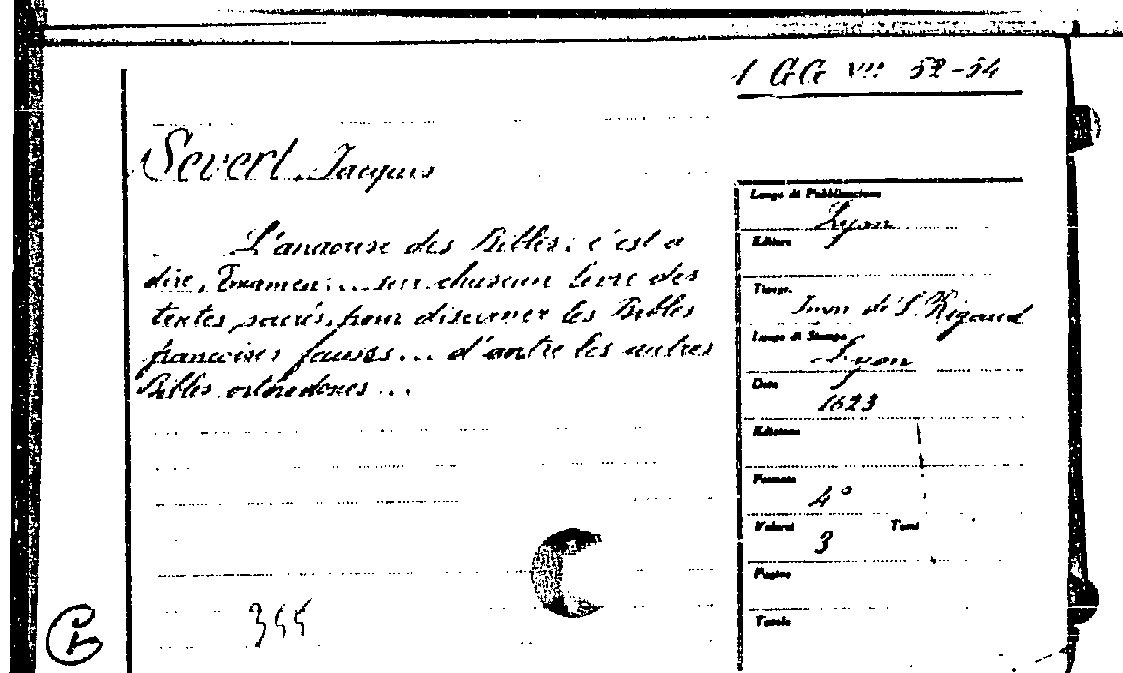 1 GG VII 52-54
Severt, Jacques
L'anaouse des Bibles: c'est a
dire, Examen.... sur chascun livre des
textes sacrés, pour discerner les Bibles
francoises fauses... d'antre les autres
Bibles orthodoxes...
Luogo di Pubblicazione
Lyon
Editore
Tipogr.
Simon di S. Rigaud
Luogo di Stampa
Lyon
Data
1623
Edizione
Formato
4°
Volumi 3 Tomi
Pagine
Tavole